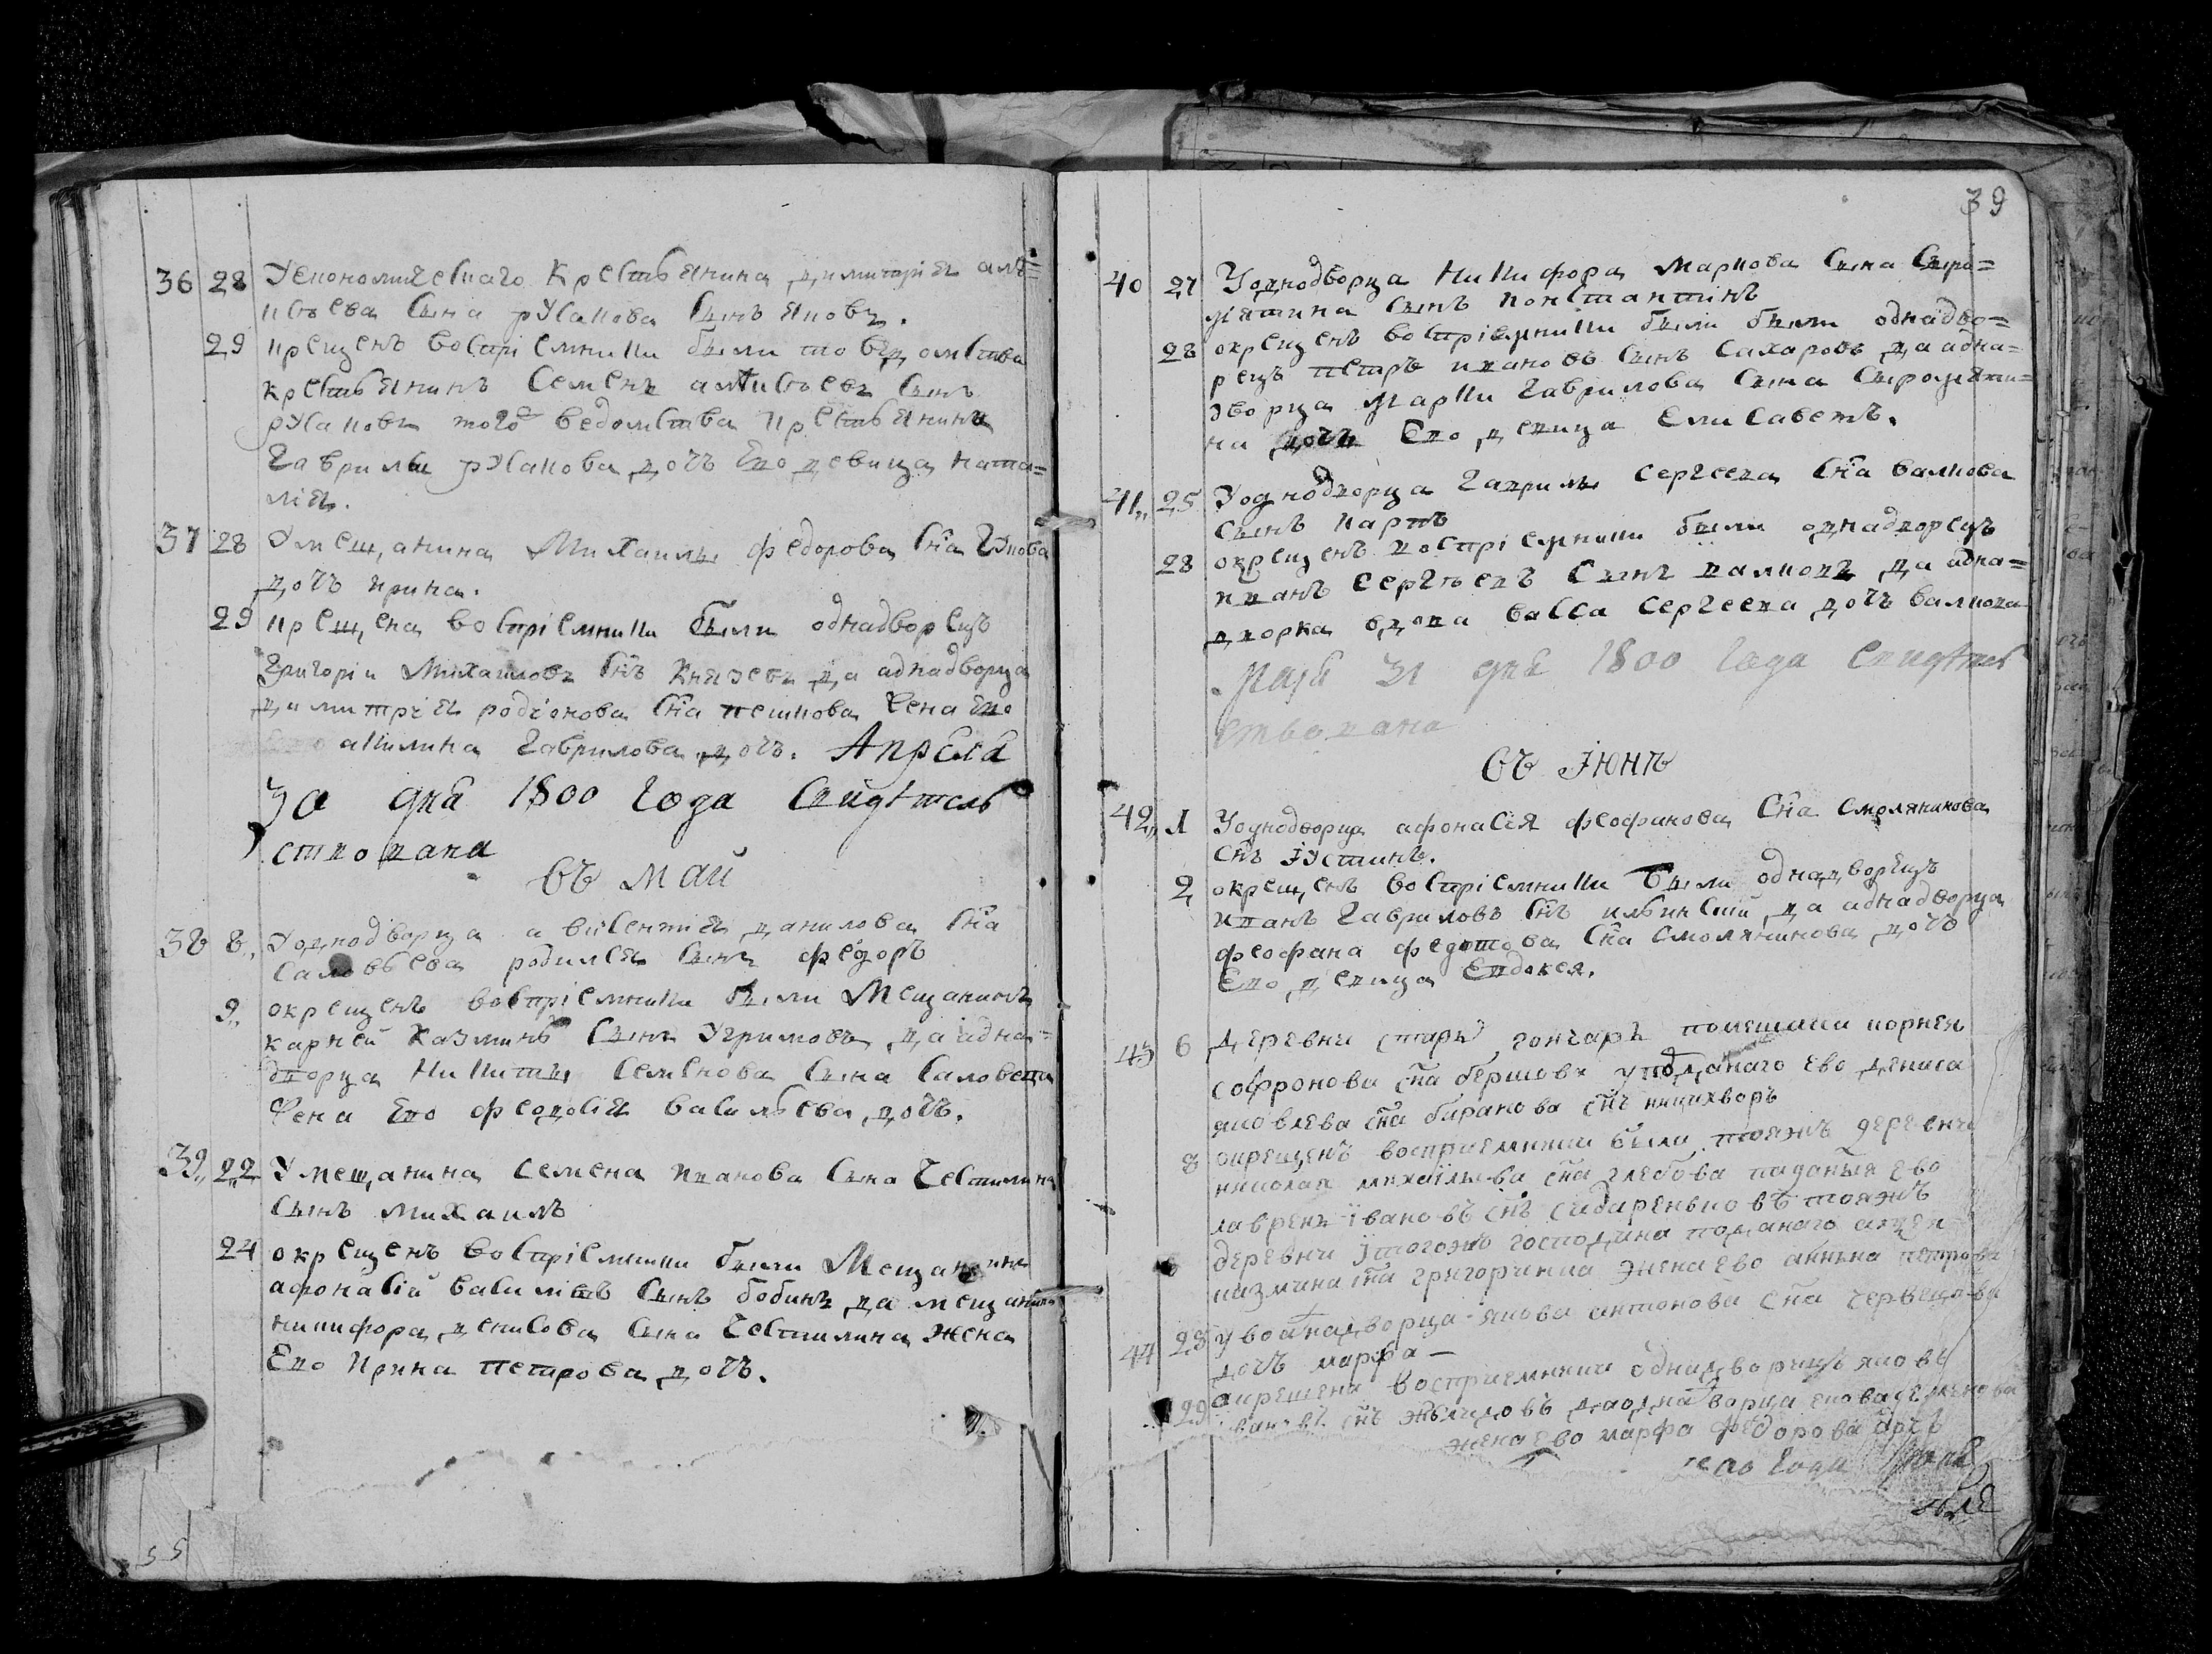 36 28 Уекономическаго крестьянина димитрія алѣ=
ксѣева сына русанова сынъ яковъ.
29 крещенъ воспріемники были то вѣдомства
крестьянинъ Семенъ алѣксѣевъ сынъ
русановъ того ведомства крестьянина
Гаврилы русанова дочь Ево девица ната=
лія.
37 28 Умещанина Михаилы федорова сна Гунова
дочь ирина.
29 крещена воспріемники были однадворецъ
Григоріи Михаиловъ снъ Князевъ да аднадворца
димитрія родіонова сна пешкова Жена Ево
акилина Гаврилова дочь. Апреля
30 дня 1800 Года Свидѣтель
ствована
въ май
38 8 Уоднодворца авксентия данилова сна
Саловьева родился сынъ фёдоръ
9 окрещенъ воспріемники были Мещанинъ
карней Казминъ сынъ Угримовъ да адна=
дворца Никиты Семенова сына Саловьева
Жена Ево феодосія васильева дочь.
39 22 Умещанина Семена иванова сына Честилина
сынъ михаилъ
24 окрещенъ воспріемники были Мещанинъ
афонасій василиевъ сынъ бобинъ да мещанина
никифора денисова сына Честилина жена
Ево Ирина петрова дочь.
55
39
40 27 Уоднодворца Никифора Маркова сына Сыро=
мятина сынъ константинъ
28 окрещенъ воспріемники были были однадво=
рецъ петръ ивановъ сынъ Сахаровъ да адна=
дворца Марки Гаврилова сына Сыромяти=
на дочь Ево девица Елисаветъ.
41 25 Уоднодворца Гаврилы Сергеева сна валкова
сынъ карпъ
28 окрещенъ воспріемники были однадворецъ
иванъ Сергѣевъ сынъ валковъ да адна=
дворка вдова васса Сергеева дочь валкова
Маія 31 дня 1800 Года Свидѣтель
ствована
въ Іюнѣ
42 1 Уоднодворца афонасія феофанова сна Смолянинова
снъ Іустинъ.
2 окрещенъ воспріемники были однадворецъ
иванъ Гавриловъ снъ ильинский да аднадворца
феофана федотова сна Смолянинова дочь
Ево девица Евдокея.
43 6 деревни стары гончаръ помещика корнея
софронова сна бершова уподанаго ево дениса
яковлева сна баранова снъ никихворъ
8 окрещенъ восприемники были тояжъ деревни
николая михаїльева сна глебова поданыя ево
лаврен ївановъ снъ сидареньковъ тояжъ
деревни їтогожъ господина поданаго
казмина сна григорикина жена ево анньна петрова
44 28 уводнадворца якова антонова сна червецова
дочь марфа —
29 акрещена восприемники однадворицъ яковъ
ивановъ снъ да однадворца семенова
жена ево марфа федорова дочь
года